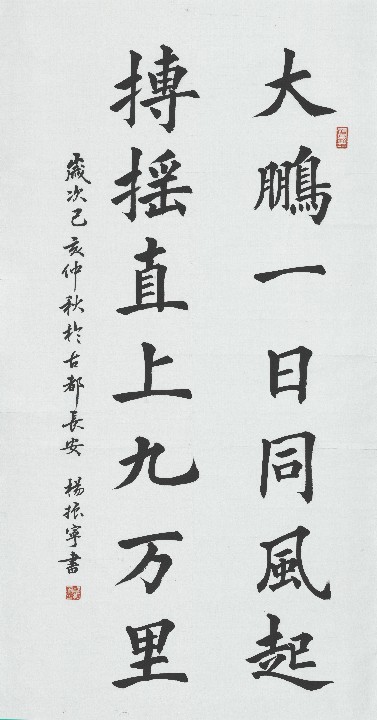 大鵬一日同風起
搏摇直上九万里
歲次己亥仲秋於古都長安 楊振寧書